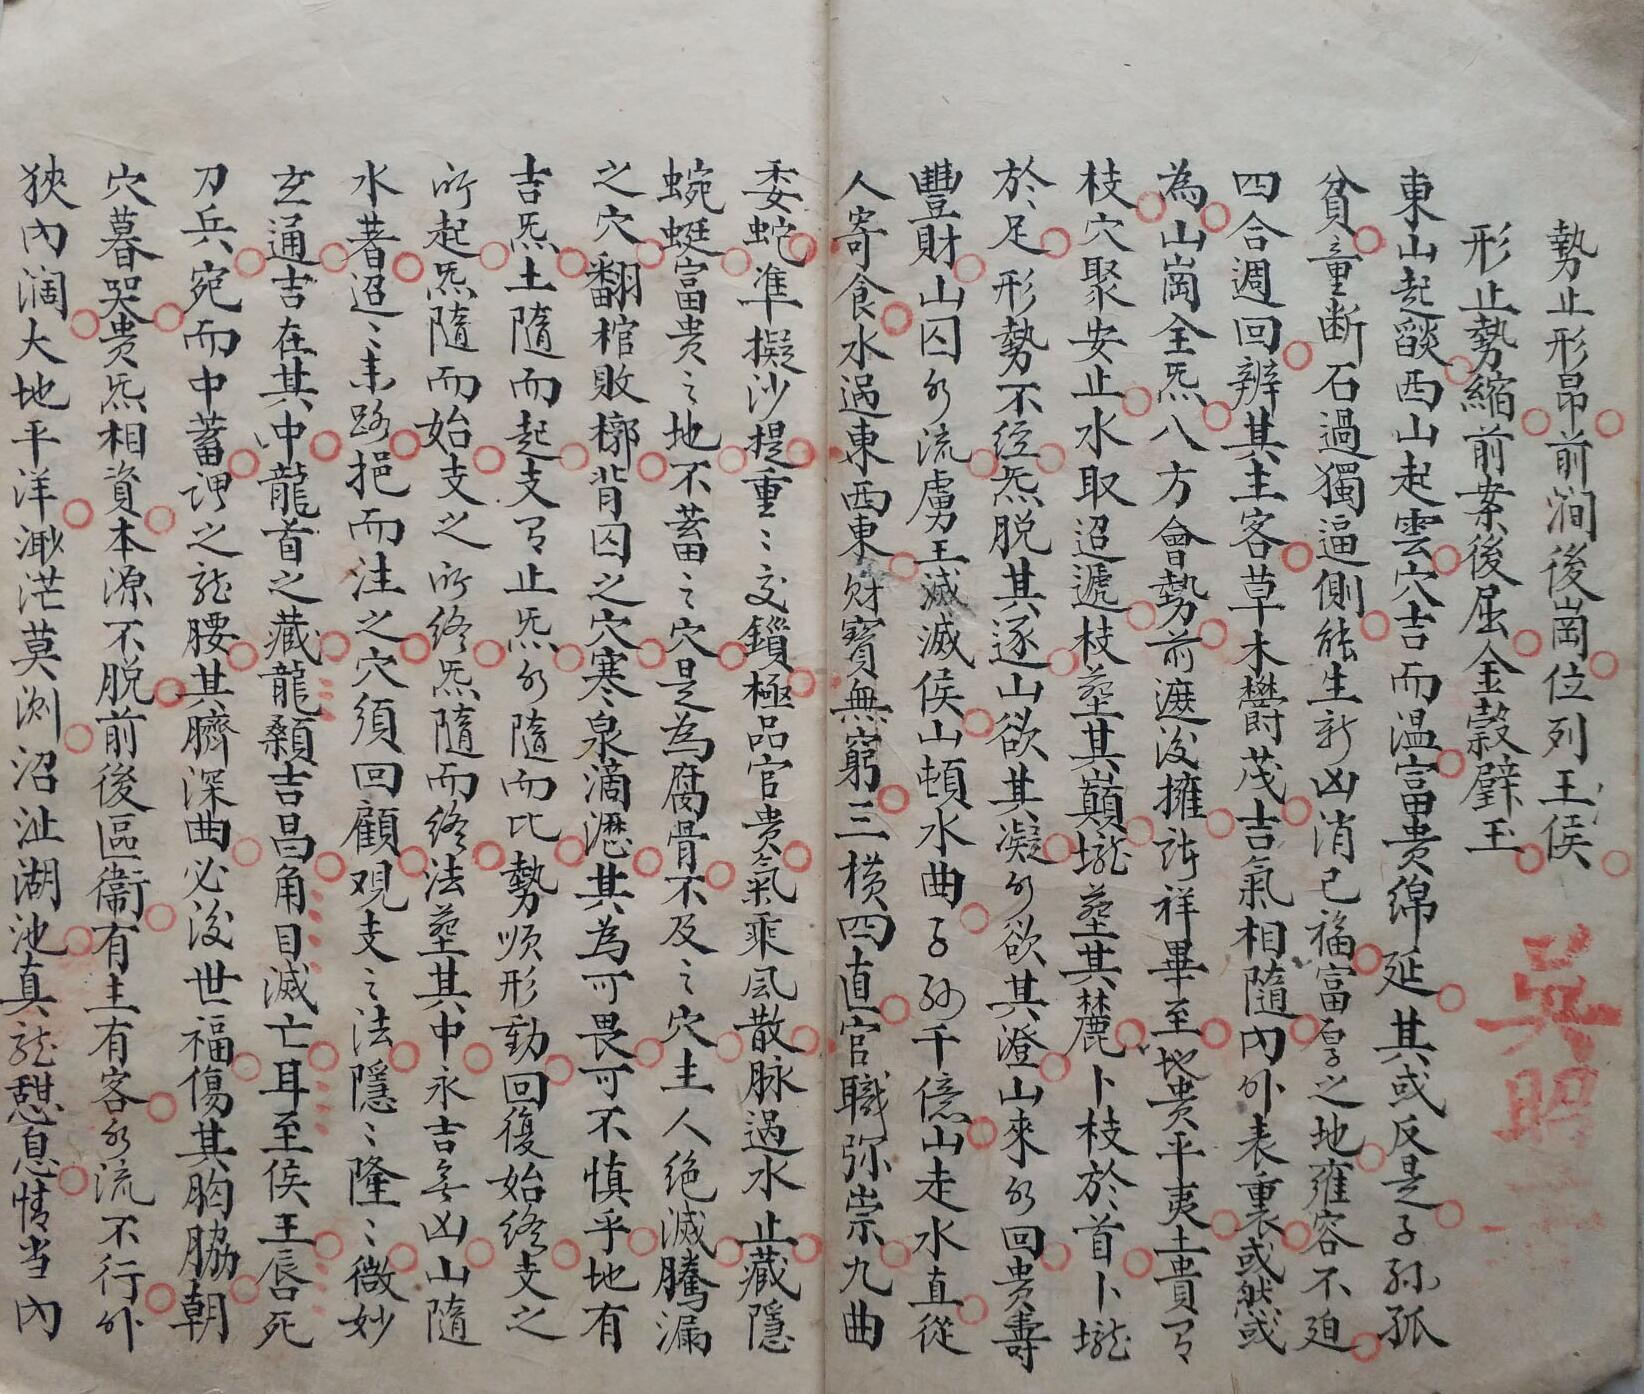 勢止形昂前澗後崗位列王侯
形止勢縮前案後屈金穀璧玉
東山起燄西山起雲穴吉而温富貴綿延其或反是子孫孤
貧童断石過獨逼側能生新凶消己福富之地雍容不迫
四合週回辨其主客草木欝茂吉氣相隨内外表裏或然或
為山崗全炁八方會勢前遮後擁諸祥畢至地贵平夷土貴有
枝穴聚安止水取迢遞枝塟其巔壠塟其麓卜枝於首卜壠
於足形勢不經炁脱其逐山欲其凝水欲其澄山來水回贵壽
豐財山囚水流虜王滅侯山頓水曲子孫千億山走水直從
人寄食水過東西東財寳無窮三横四直官職弥崇九曲
委蛇準擬沙堤重〻交鎖極品官贵氣乘風散脉過水止藏隱
蜿蜒富贵之地不蓄之穴是為腐骨不及之穴主人绝滅騰漏
之穴翻棺敗槨背囚之穴寒泉滴瀝其為可畏可不慎乎地有
吉炁土隨而起支有止炁水隨而比勢順形動回復始終支之
所起炁隨而始支之所終炁隨而終法塟其中永吉無凶山隨
水著迢〻来路挹而注之穴須回顧观支之法隱〻隆〻微妙
玄通吉在其中龍首之藏龍顙吉昌角目滅亡耳至侯王唇死
刀兵宛而中蓄謂之龍腰其臍深曲必後世福傷其胸脇朝
穴暮哭贵炁相資本源不脱前後區衞有主有客水流不行外
狹内濶大地平洋渺茫莫測沼沚湖池真龍憩息情当内